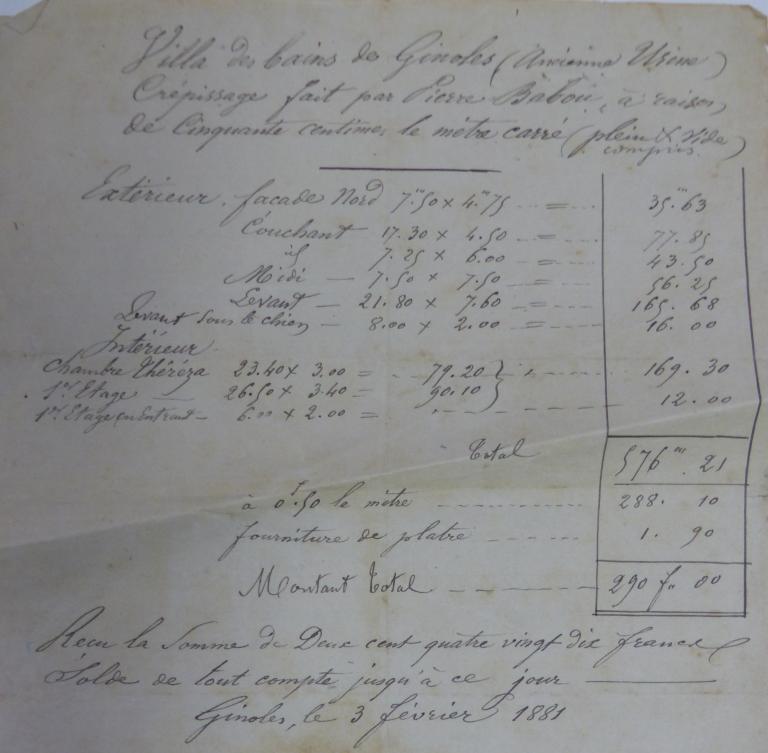 Villa des bains de Ginoles (Ancienne Usine)
Crépissage fait par Pierre Babou, à raison,
de Cinquante centimes le mètre carré (plein & vide
compris)
Extérieur. façade Nord 7.m50 x 4.m75 = 35.m63
Couchant 17.30 x 4.50 = 77.85
id 7.25 x 6.00 = 43.50
Midi - 7.50 x 7.50 = 56.25
Levant - 21.80 x 7.60 = 165.68
Levant sous le chien - 8.00 x 2.00 = 16.00
Intérieur
Chambre Théréza 23.40 x 3.00 = 79.20 } 169.30
1er Etage 26.50 x 3.40 = 90.10
1er Etage en Entrant - 6.00 x 2.00 = 12.00
Total 576m.21
à 0f.50 le mètre 288.10
fourniture de platre 1.90
Montant Total 290 f. 00
Recu la Somme de Deux cent quatre vingt dix francs
Solde de tout compte jusqu'à ce jour
Ginoles, le 3 février 1881